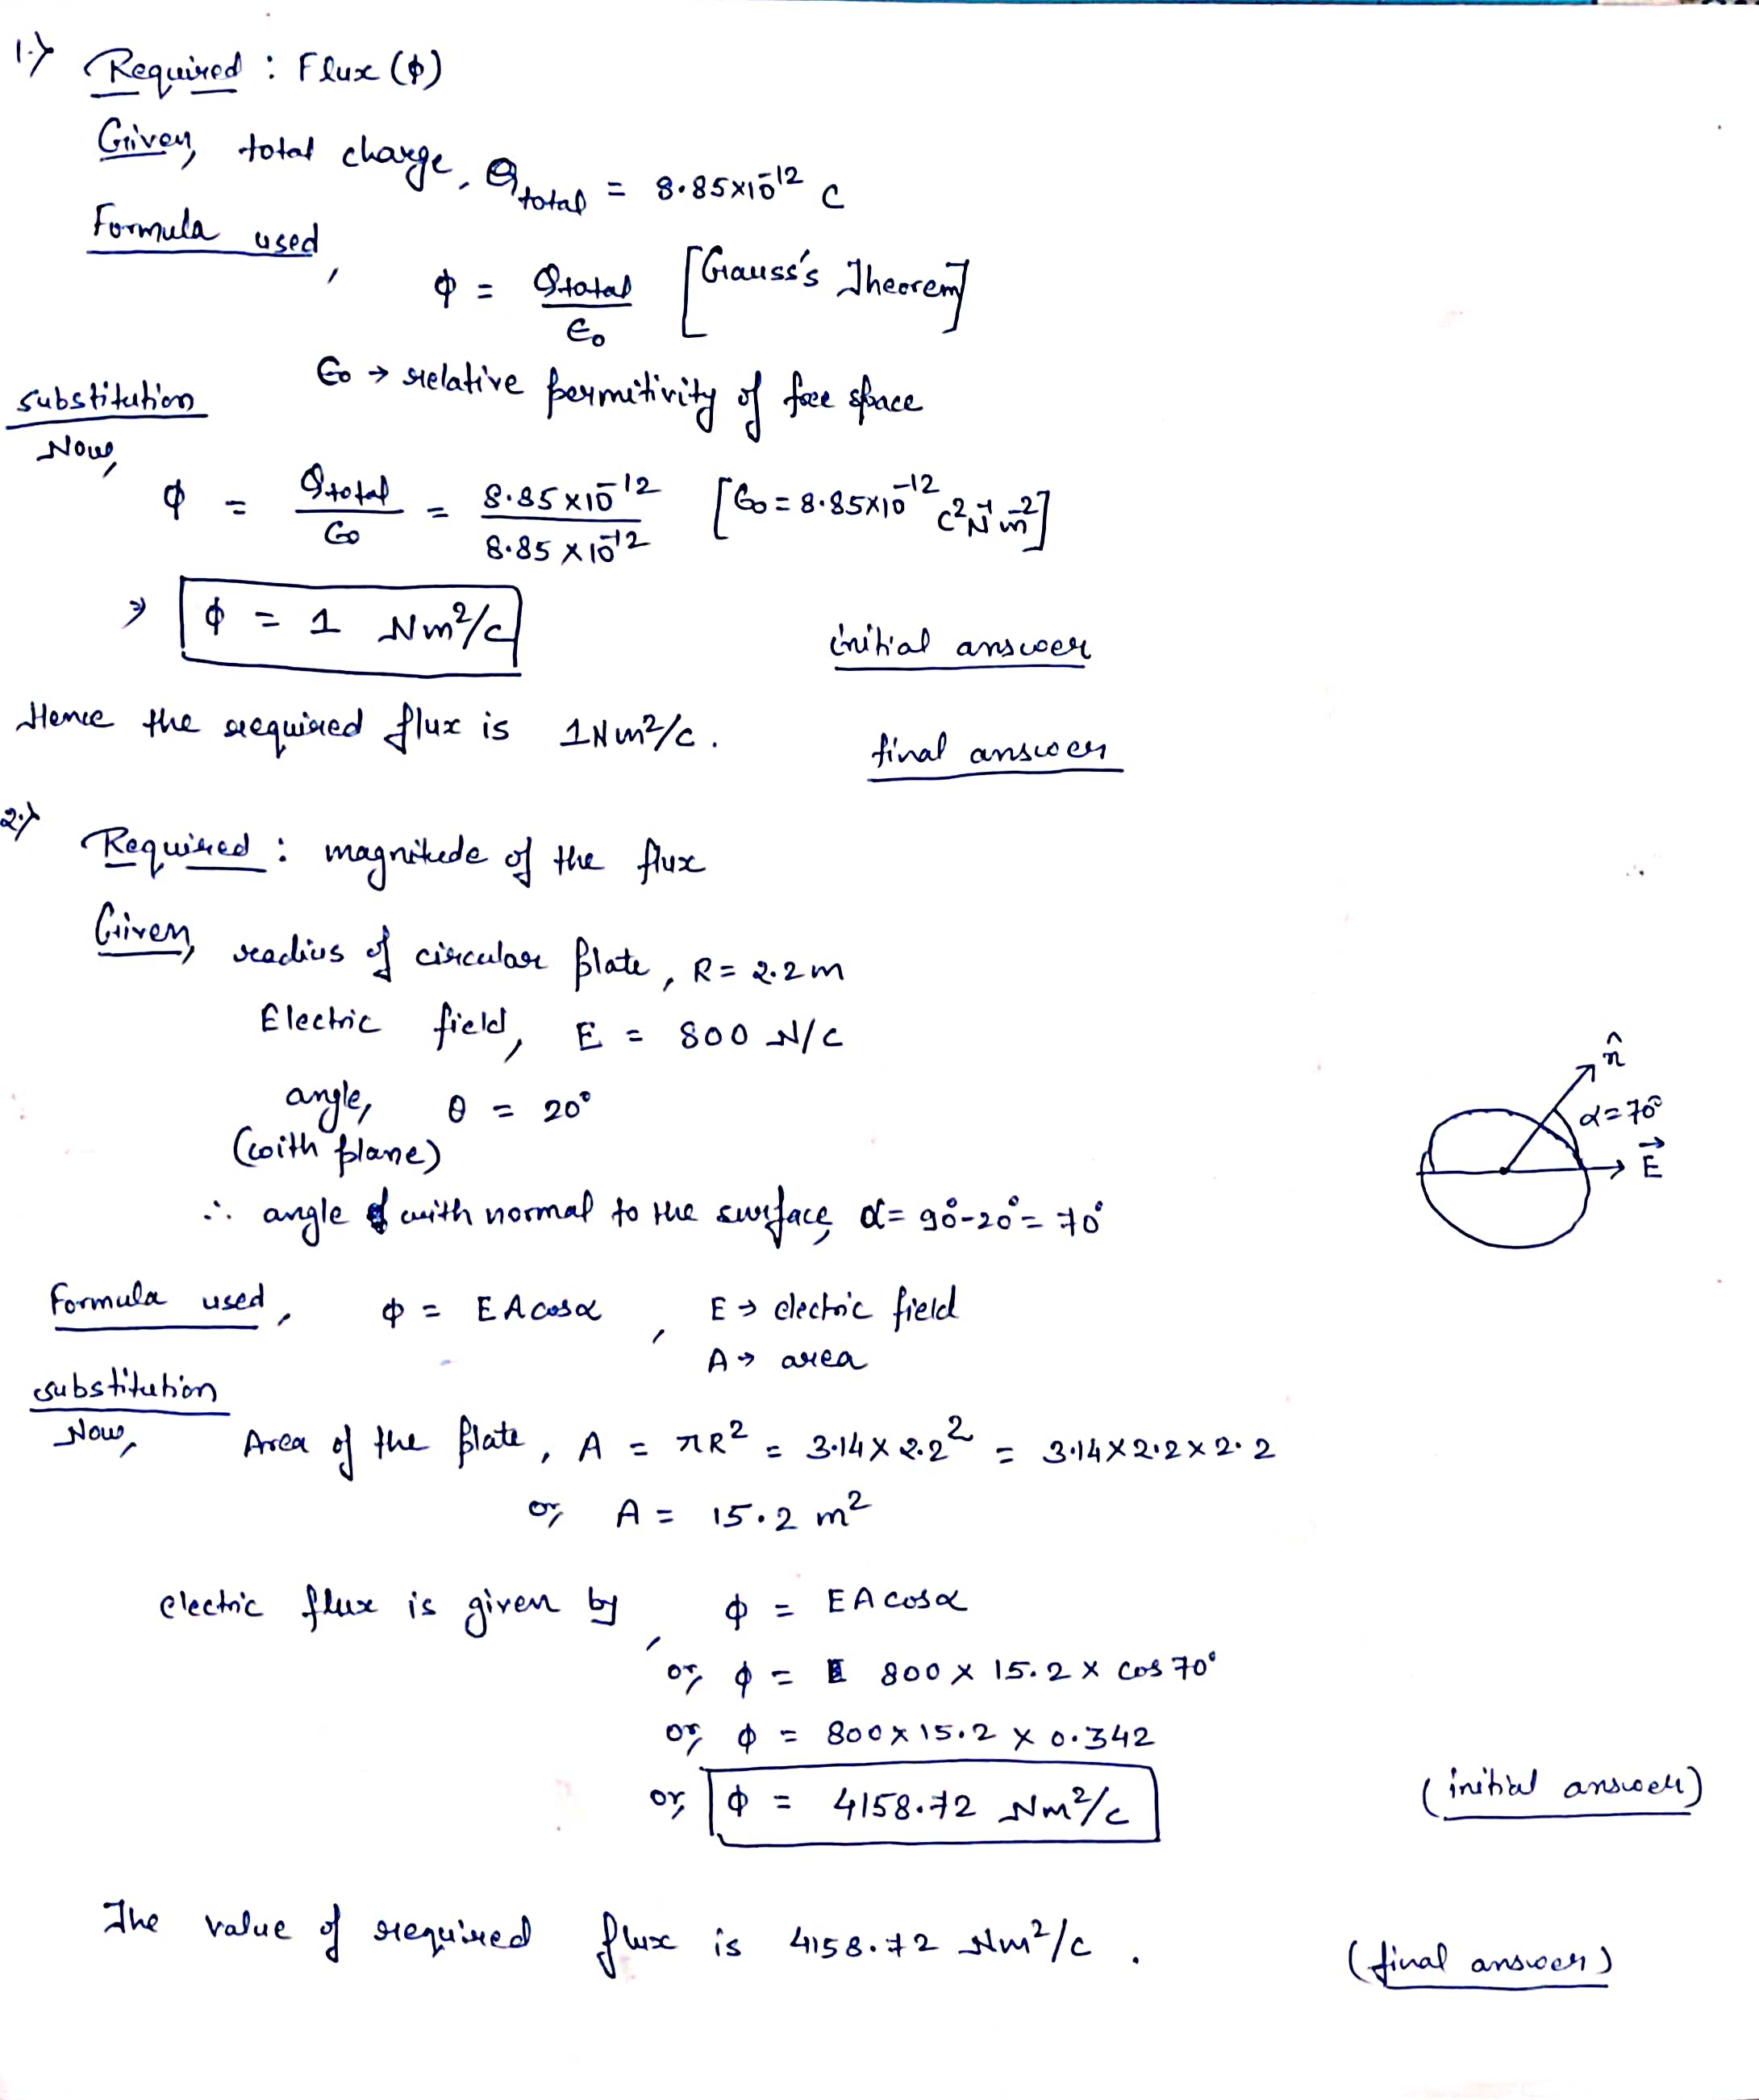 1.) Required : Flux (φ)
Given, total charge, Qtotal = 8.85×10⁻¹² C
Formula used,
φ = Qtotal/ε₀ [Gauss's Theorem]
ε₀ → relative permitivity of free space
substitution
Now,
φ = Qtotal/ε₀ = 8.85×10⁻¹²/8.85×10⁻¹² [ε₀ = 8.85×10⁻¹² C²N⁻¹m⁻²]
⇒ φ = 1 Nm²/C
initial answer
Hence the required flux is 1Nm²/C.
final answer
2.) Required : magnitude of the flux
Given, radius of circular plate, R = 2.2 m
Electric field, E = 800 N/C
angle, θ = 20°
(with plane)
∴ angle with normal to the surface, α = 90°-20° = 70°
n̂
α = 70°
E⃗
Formula used, φ = EAcosα, E → electric field
A → area
substitution
Now, Area of the plate, A = πR² = 3.14 × 2.2² = 3.14×2.2×2.2
or, A = 15.2 m²
electric flux is given by, φ = EAcosα
or, φ = 800 × 15.2 × cos70°
or, φ = 800×15.2 × 0.342
or, φ = 4158.72 Nm²/C (initial answer)
The value of required flux is 4158.72 Nm²/C. (final answer)